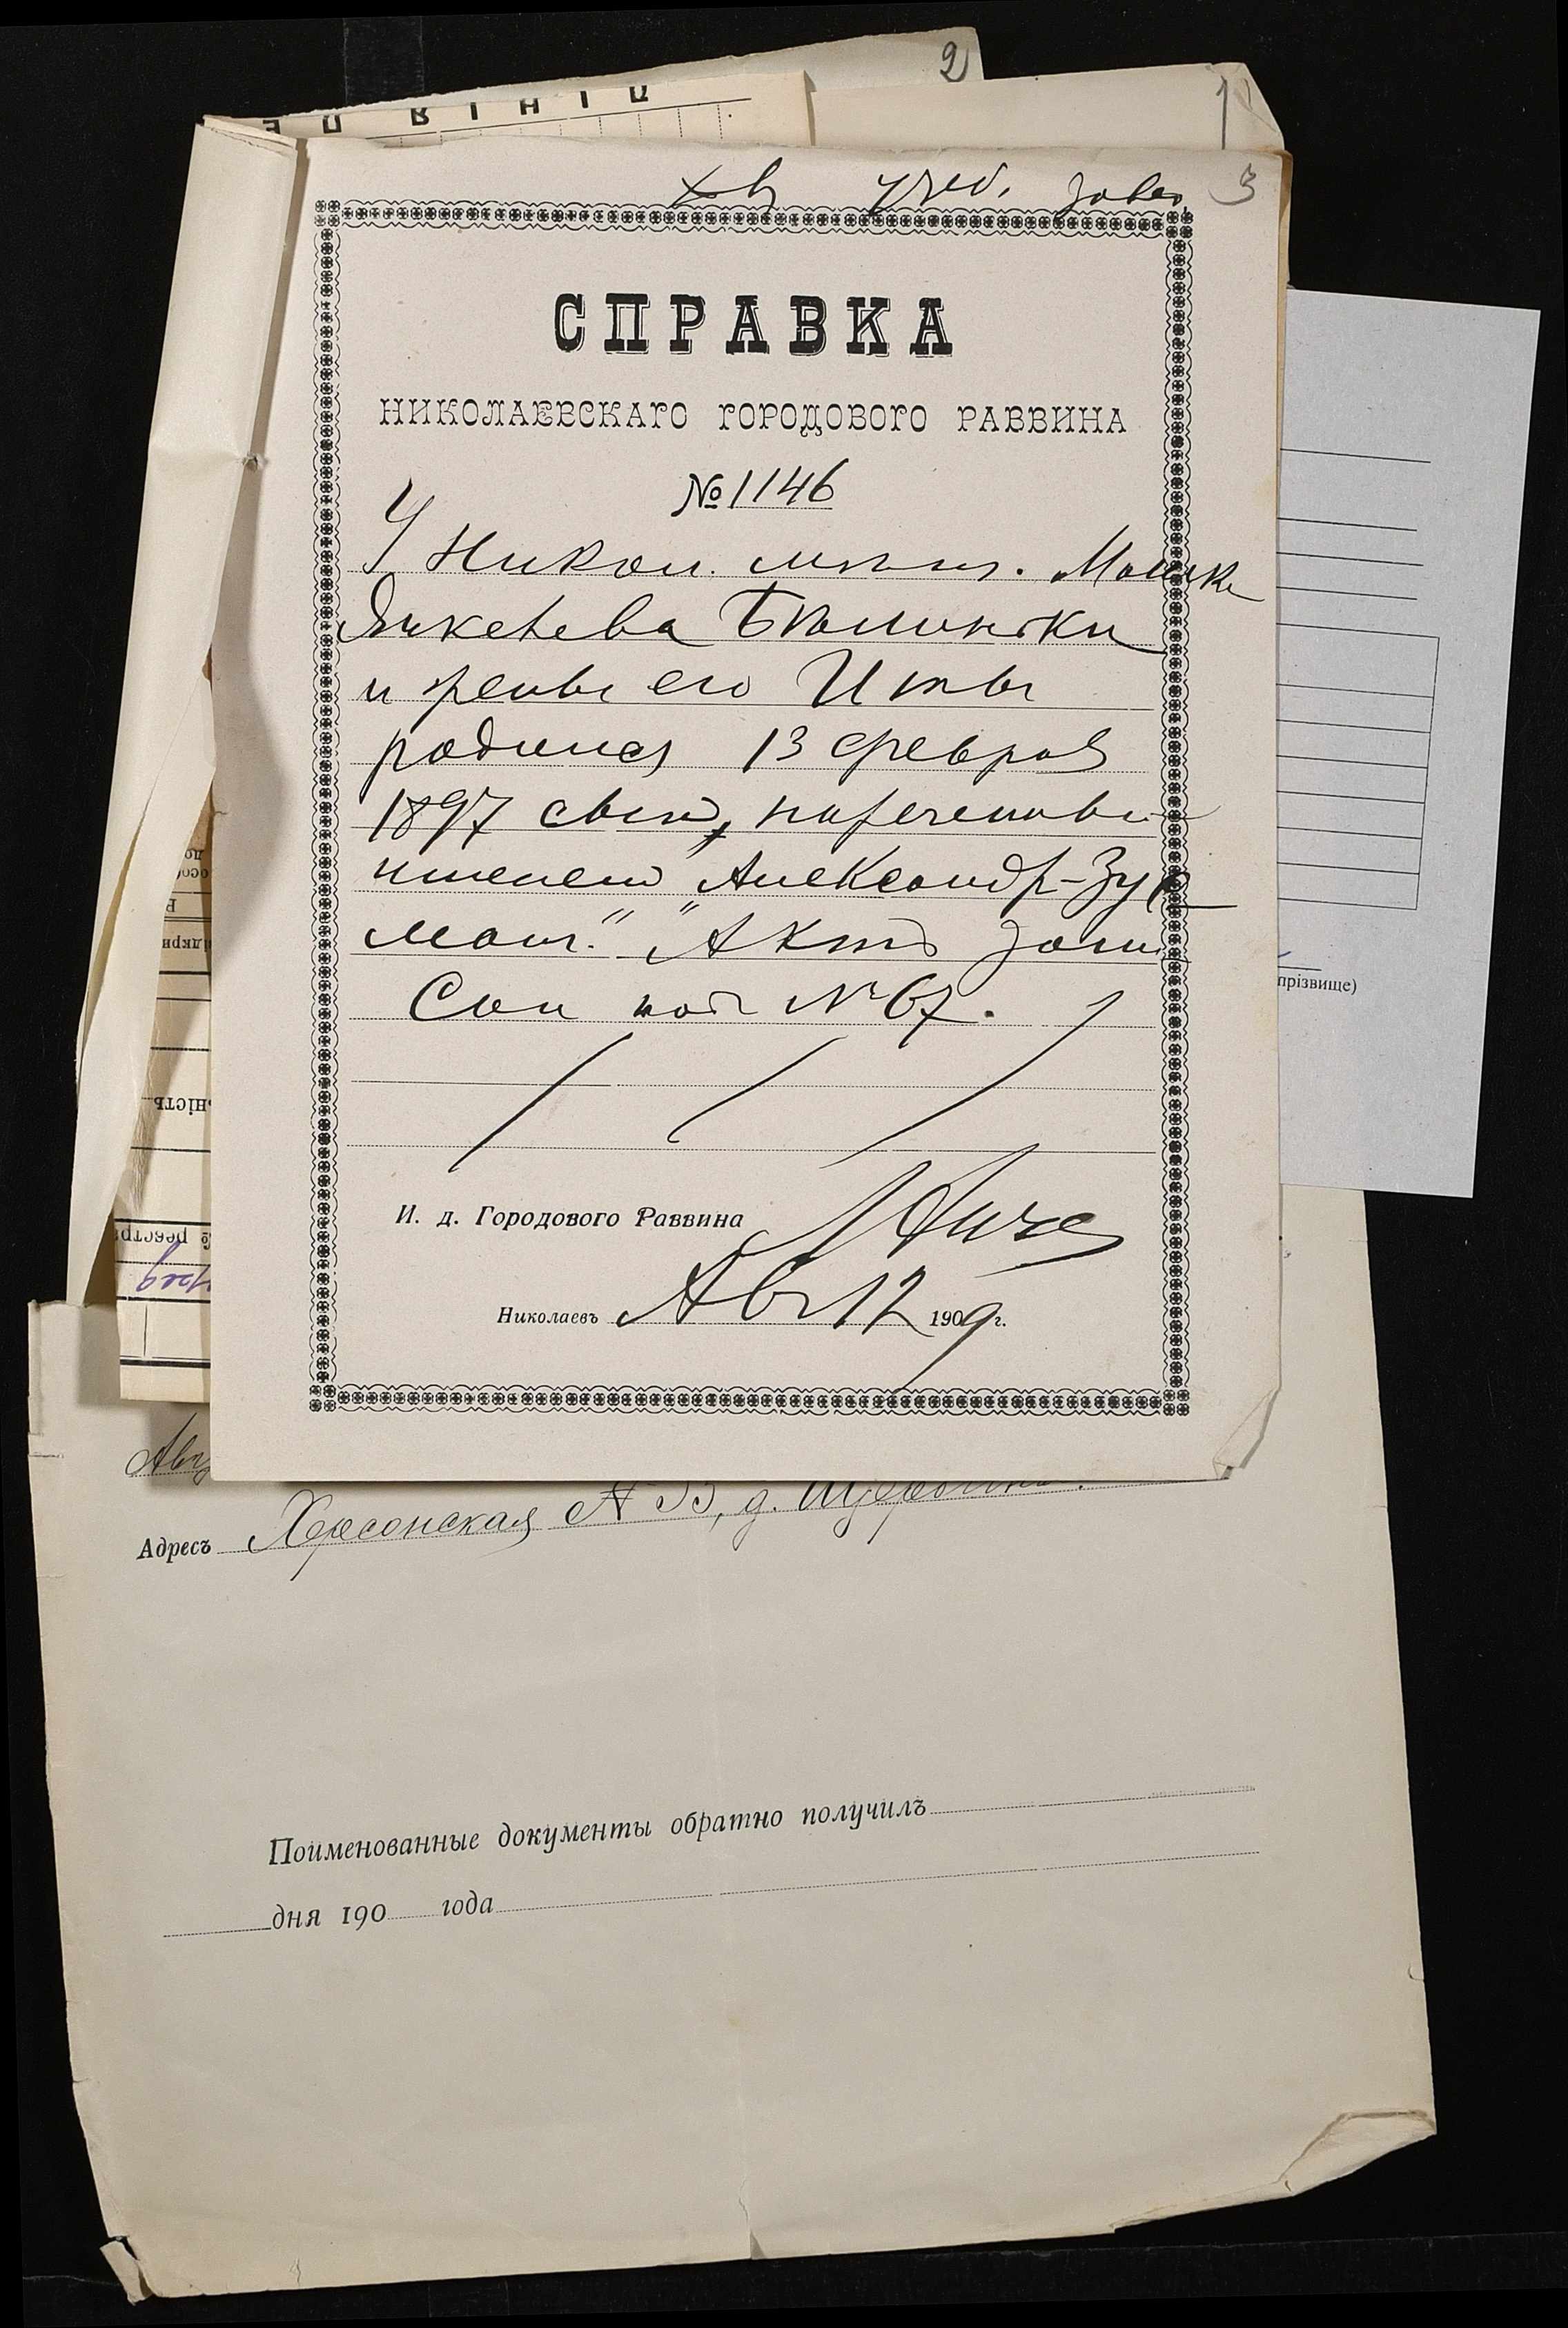 2
3
въ учеб. завед.
СПРАВКА
НИКОЛАЕВСКАГО ГОРОДОВОГО РАВВИНА
№ 1146
У Никол. мѣщ. Мошки
и жены его Иты
родился 13 февраля
1897 сынъ, нареченный
именемъ „Александр-Зус
ман.“ Актъ запи
сан под № 67.
И. д. Городового Раввина
Николаевъ Авг 12 1909 г.
прізвище)
Адресъ Херсонская № 35, д.
Поименованные документы обратно получилъ
дня 190 года